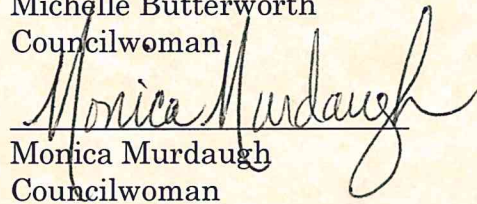 Michelle Butterworth
Councilwoman
Monica Murdaugh
Monica Murdaugh
Councilwoman